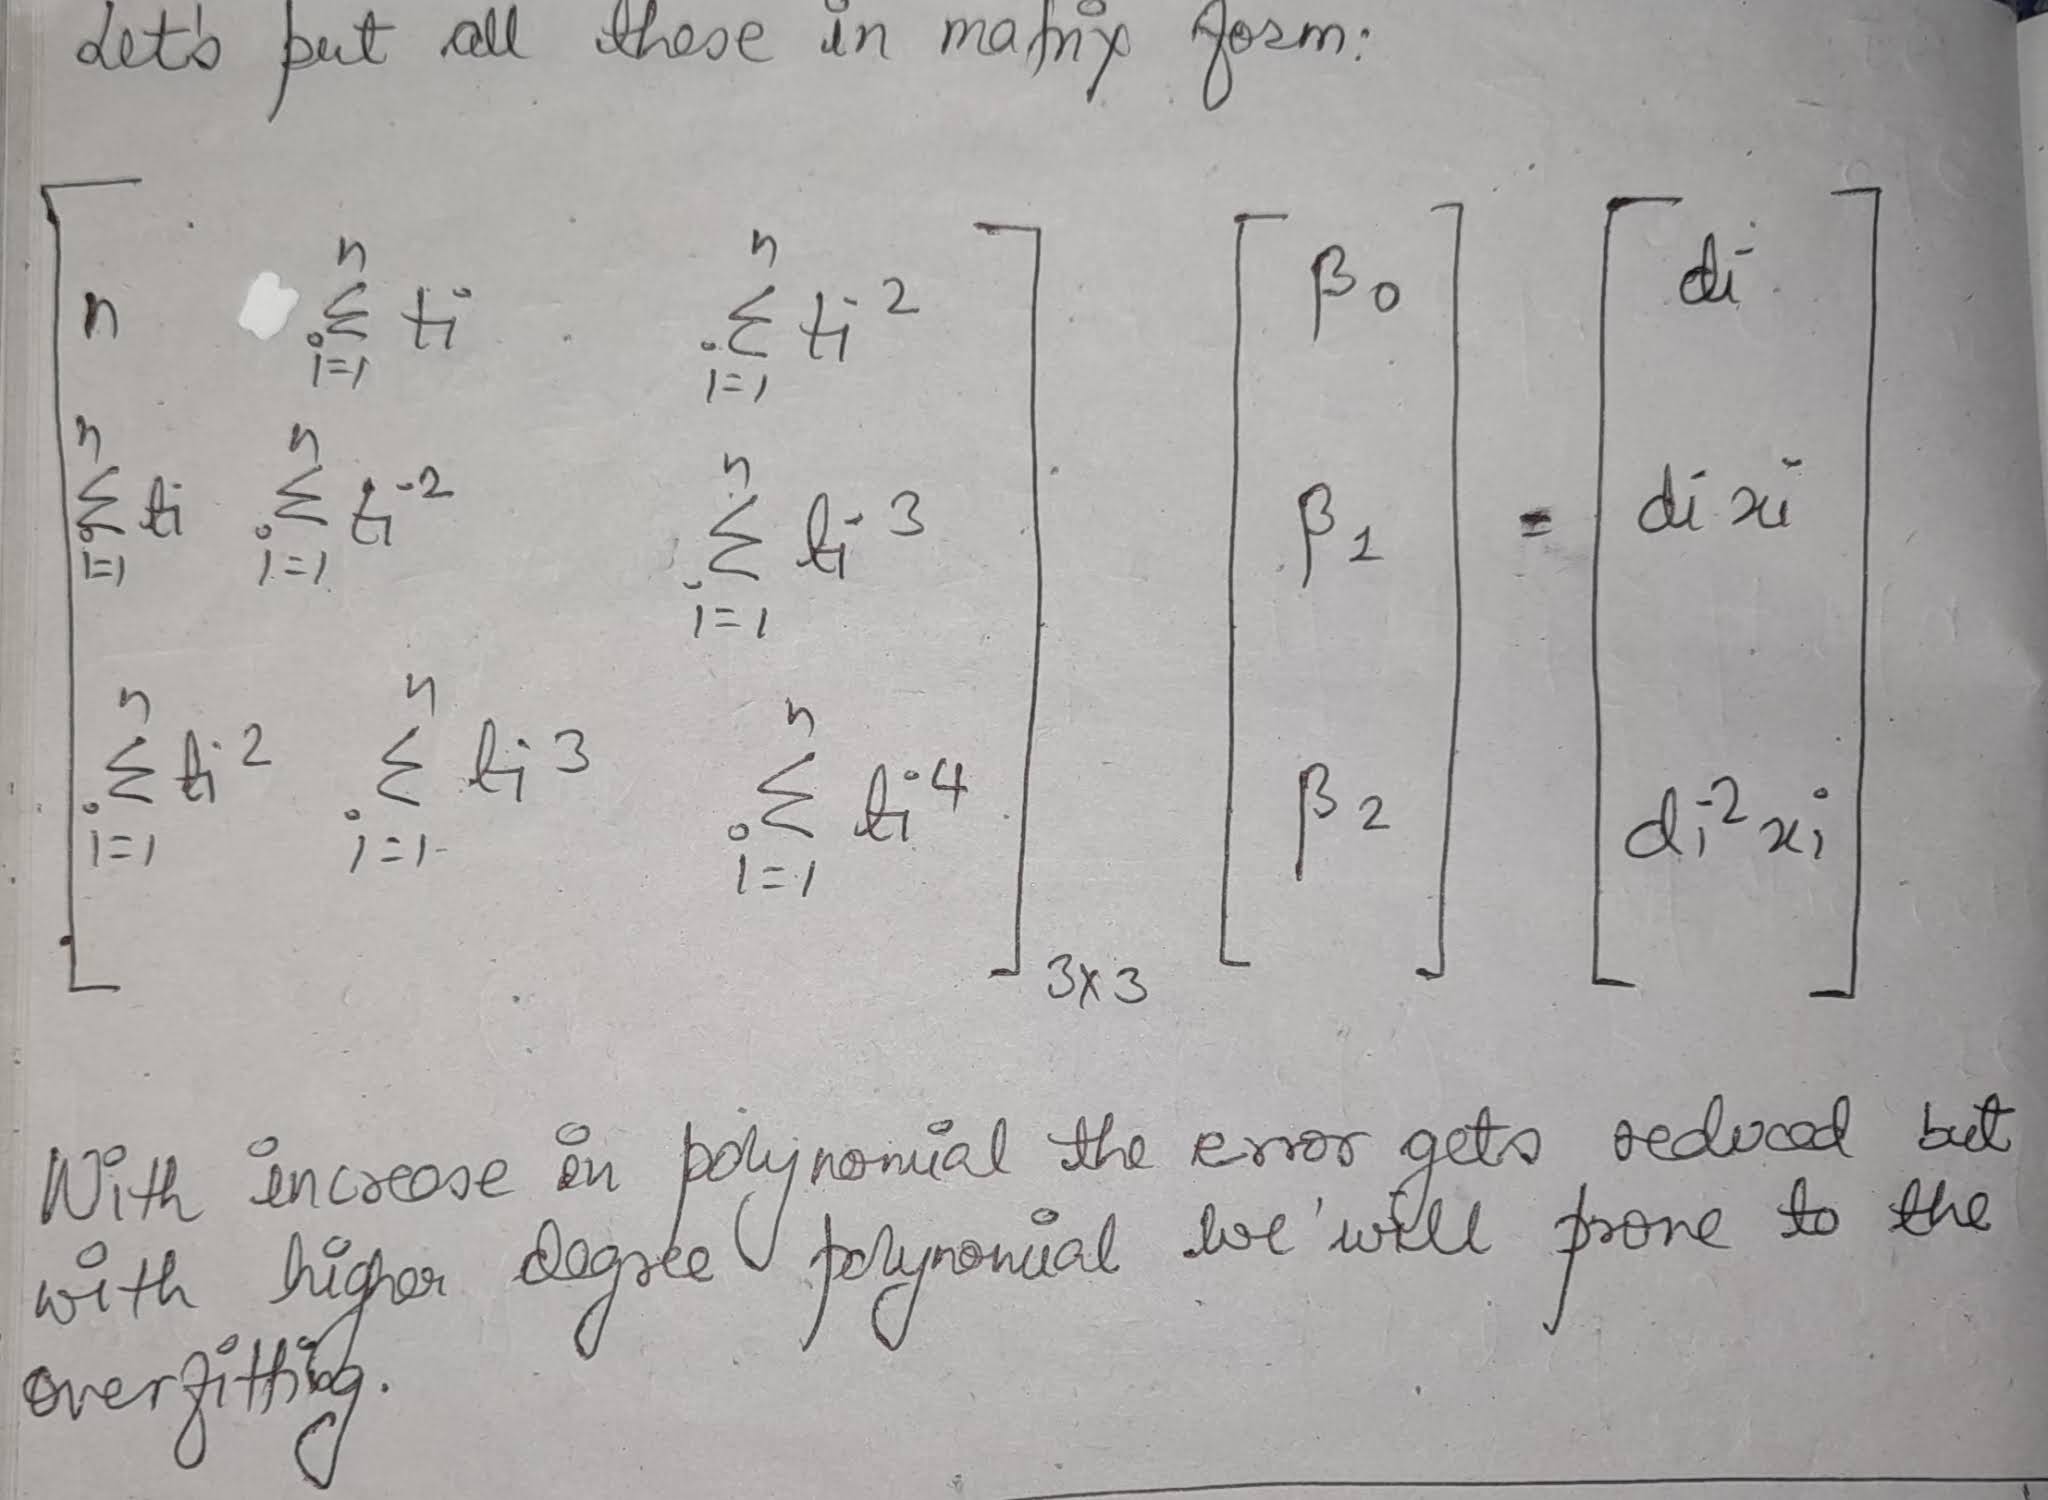 Let's put all these in matrix form:
[ n  \sum_{i=1}^{n} t_i  \sum_{i=1}^{n} t_i^2 ]
[ \sum_{i=1}^{n} t_i  \sum_{i=1}^{n} t_i^2  \sum_{i=1}^{n} t_i^3 ]
[ \sum_{i=1}^{n} t_i^2  \sum_{i=1}^{n} t_i^3  \sum_{i=1}^{n} t_i^4 ]_{3x3}
[ β0 β1 β2 ] = [ di  di xi  di^2 xi ]
With increase in polynomial the error gets reduced but
with higher degree polynomial we will prone to the
overfitting.